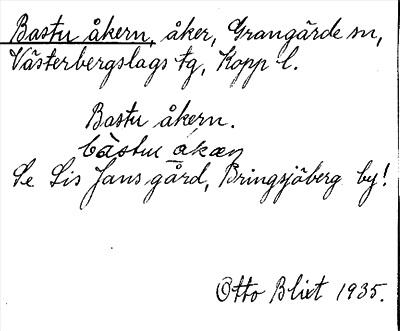 Bastu åkern, åker, Grangärde sn,
Västerbergslags tg, Kopp l.
Bastu åkern.
bàstu åkæn
Se Lis Jans gård, Bringsjöberg by!
Otto Blixt 1935.